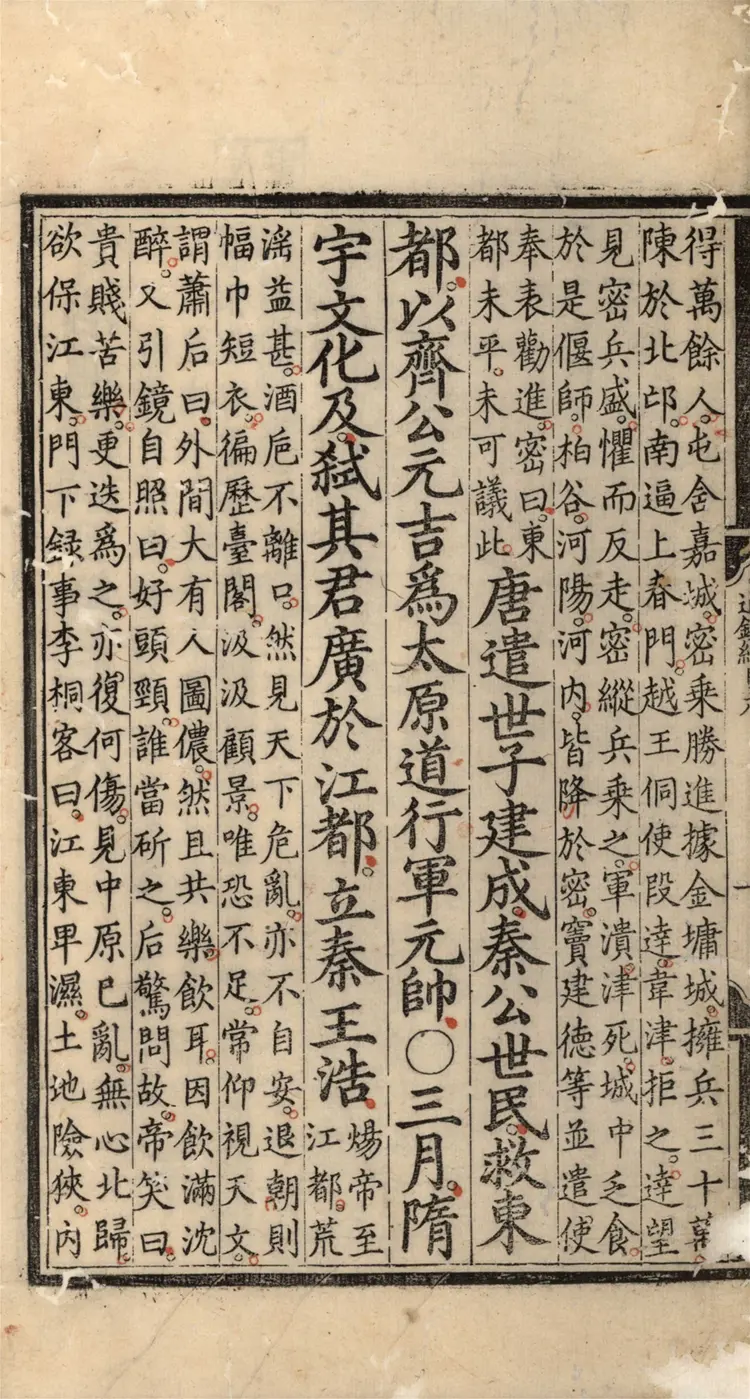 得萬餘人屯舍嘉城密乘勝進據金墉城擁兵三十萬
陳於北邙南逼上春門越王侗使段達韋津拒之達望
見密兵盛懼而反走密縱兵乘之軍潰津死城中乏食
於是偃師柏谷河陽河内皆降於密竇建德等並遣使
奉表勸進密曰東
都未平未可議此
唐遣世子建成秦公世民救東
都以齊公元吉爲太原道行軍元帥〇三月隋
宇文化及弑其君廣於江都立秦王浩
煬帝至
江都荒
滛益甚酒巵不離口然見天下危亂亦不自安退朝則
幅巾短衣徧歷臺閣汲汲顧景唯恐不足常仰視天文
謂蕭后曰外間大有人圖儂然且共樂飲耳因飲滿沈
醉又引鏡自照曰好頭頸誰當斫之后驚問故帝笑曰
貴賤苦樂更迭爲之亦復何傷見中原已亂無心北歸
欲保江東門下録事李桐客曰江東卑濕土地險狹内